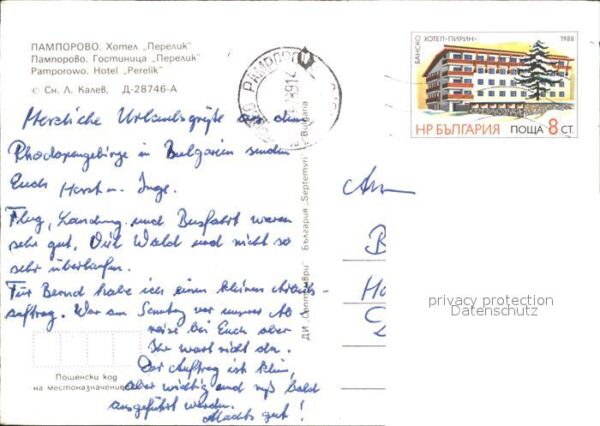 ПАМПОРОВО. Хотел „Перелик"
Пампорово. Гостиница „Перелик"
Pamporowo. Hotel „Perelik"
© Сн. Л. Калев, Д-28746-А
Herzliche Urlaubsgrüße aus dem
Rhodopengebirge in Bulgarien senden
Euch Horst u. Inge.
Flug, Landung und Busfahrt waren
sehr gut. Viel Wald und nicht so
sehr überlaufen.
Für Bernd habe ich einen kleinen Arbeits-
auftrag. War am Samstag vor unserer Ab
reise bei Euch aber
Ihr wart nicht da.
Der Auftrag ist klein,
aber wichtig und muß bald
ausgeführt werden.
Machts gut!
Пощенски код
на местоназначение
ДИ „Септември" България „Septemvri" Bulgaria
БАНСКО ХОТЕЛ-ПИРИН 1988
НР БЪЛГАРИЯ ПОЩА 8 СТ.
An
B
Ha
privacy protection
Datenschutz